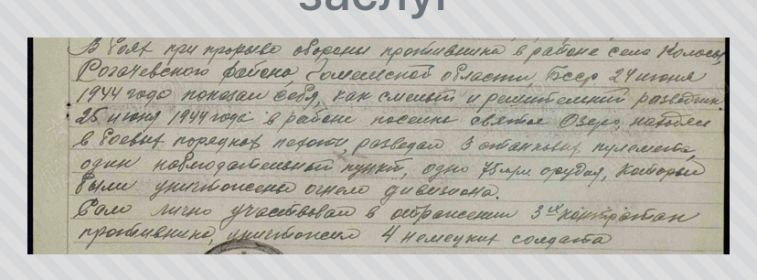 заслуг
В боях при прорыве обороны противника в районе села Колосы
Рогачевского района Гомельской области, БССР 24 июня
1944 года показал себя, как смелый и решительный разведчик.
25 июня 1944 года в районе поселка святое Озеро, находясь
в боевых порядках пехоты, разведал 3 станковых пулемета,
один наблюдательный пункт, одно 75 м/м орудия, которые
были уничтожены огнем дивизиона.
Сам лично участвовал в отражении 3ех контратак
противника, уничтожил 4 немецких солдата